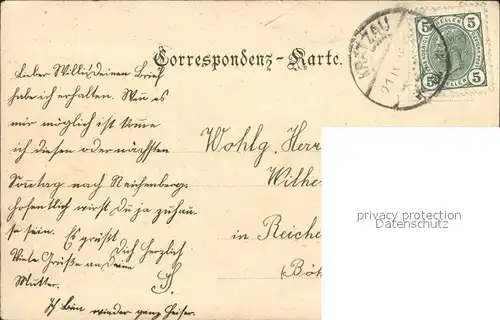 Correspondenz-Karte.
KRATZAU
5 HELLER 5
5 5
Lieber Willi! deinen Brief
habe ich erhalten. Wenn es
mir möglich ist komme
ich diesen oder nächsten
Sonntag nach Reichenberg.
hofentlich wirst Du ja zuhau
se sein. Es grüßt
Dich herzlich
Viele Grüße an deine
Mutter.
Ich bin wieder ganz heiser.
Wohlg. Herr
Wilhe
in Reiche
(Böh
privacy protection
Datenschutz